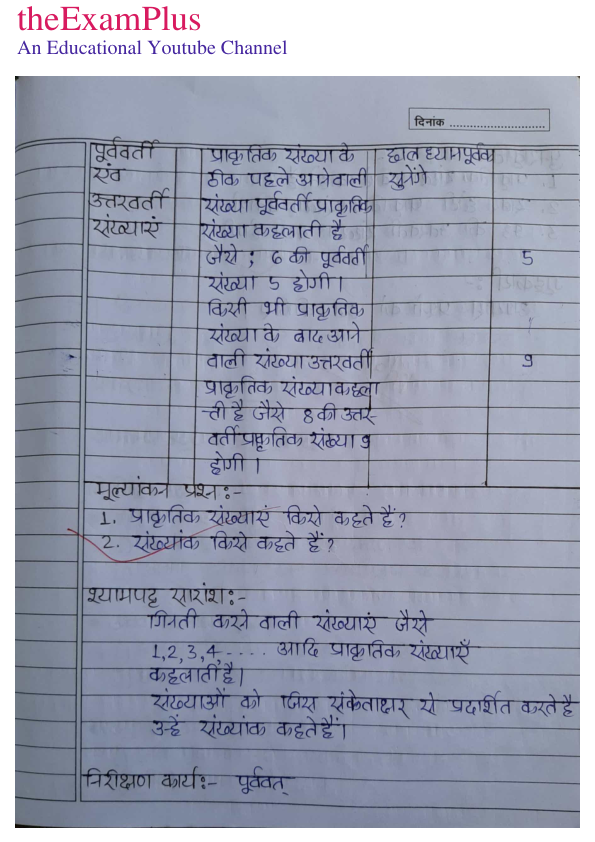 theExamPlus
An Educational Youtube Channel
दिनांक ............................
पूर्ववर्ती
एंव
उत्तरवर्ती
संख्याएं
प्राकृतिक संख्या के
ठीक पहले आनेवाली
संख्या पूर्ववर्ती प्राकृतिक
संख्या कहलाती है
जैसे ; 6 की पूर्ववर्ती
संख्या 5 होगी।
किसी भी प्राकृतिक
संख्या के बाद आने
वाली संख्या उत्तरवर्ती
प्राकृतिक संख्या कहला
ती है जैसे 8 की उत्तर
वर्ती प्राकृतिक संख्या 9
होगी ।
छात्र ध्यानपूर्वक
सुनेंगे
5
9
मूल्यांकन प्रश्न:-
1. प्राकृतिक संख्याएं किसे कहते हैं?
2. संख्यांक किसे कहते हैं?
श्यामपट्ट सारांश:-
गिनती करने वाली संख्याएं जैसे
1,2,3,4,.... आदि प्राकृतिक संख्याएँ
कहलाती है।
संख्याओं को जिस संकेताक्षर से प्रदर्शित करते है
उन्हें संख्यांक कहते हैं।
निरीक्षण कार्य:- पूर्ववत्